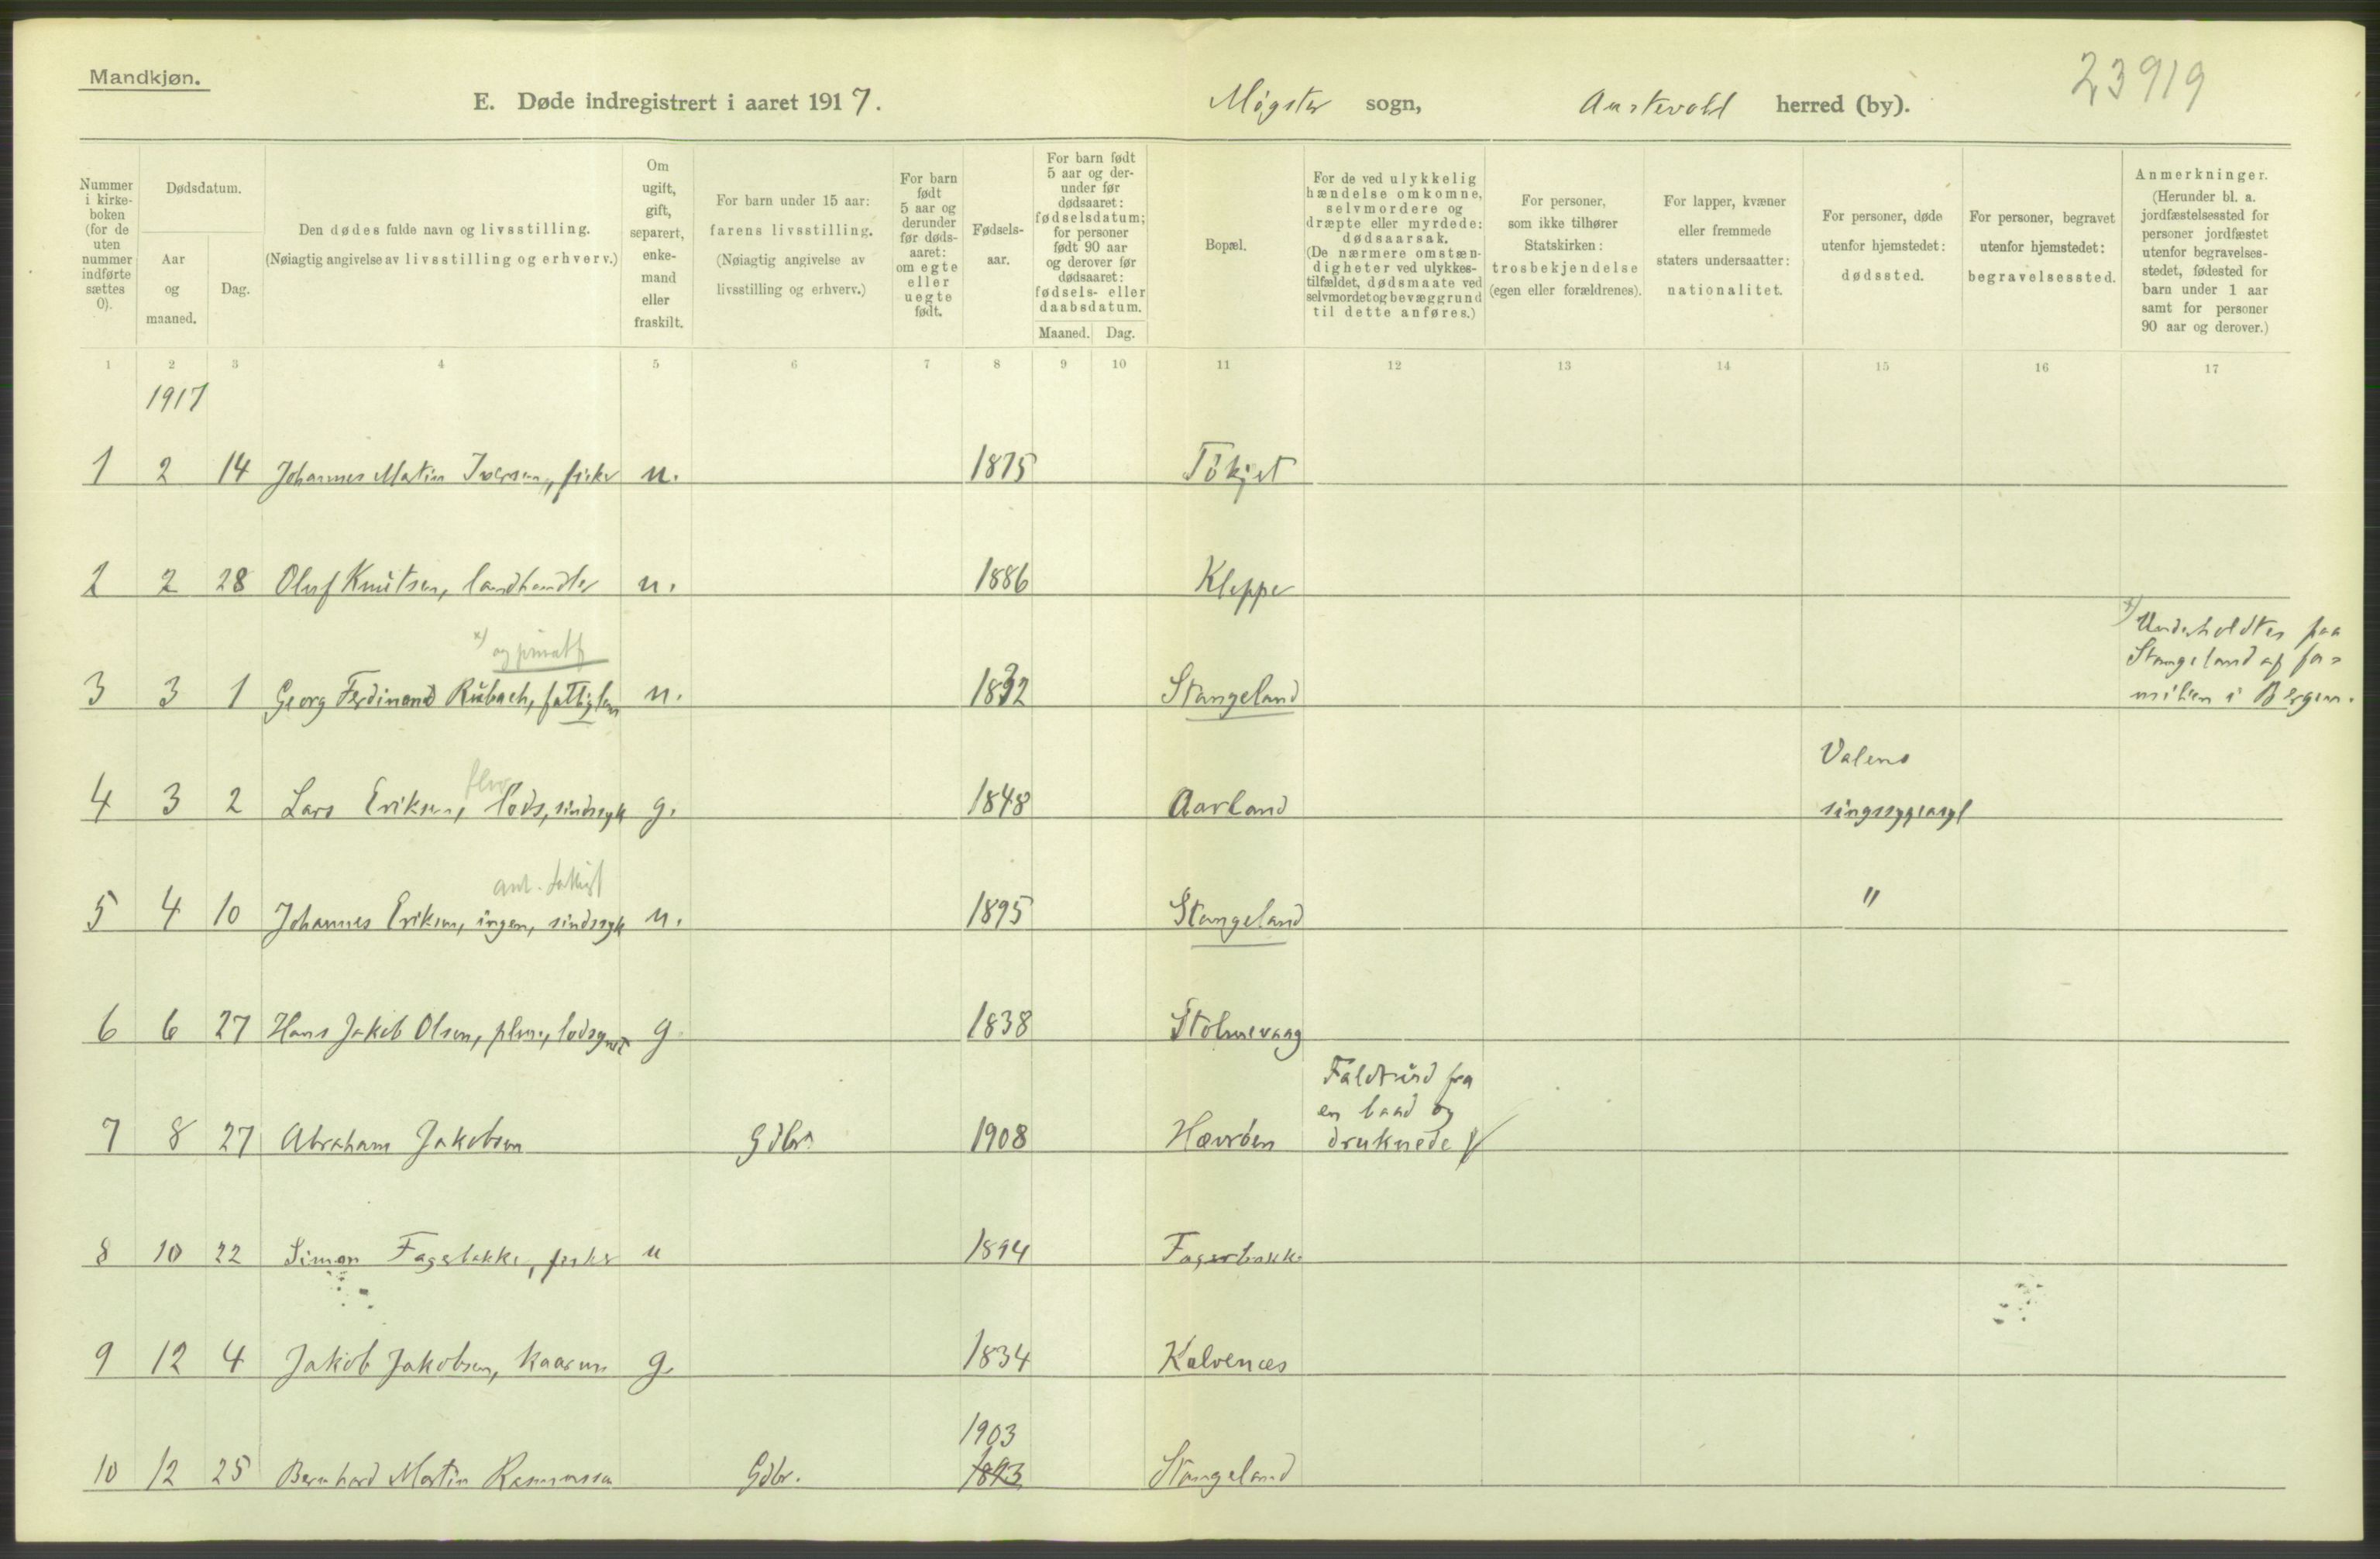 Mandkjøn.
23919
E. Døde indregistrert i aaret 1917. Møgster sogn, Austevold herred (by).
Nummer i kirke-boken (for de uten nummer indførte sættes 0).
Dødsdatum.
Aar og maaned.
Dag.
Den dødes fulde navn og livsstilling.
(Nøiagtig angivelse av livsstilling og erhverv.)
Om ugift, gift, separert, enke-mand eller fraskilt.
For barn under 15 aar:
farens livsstilling.
(Nøiagtig angivelse av livsstilling og erhverv.)
For barn født 5 aar og derunder før døds-aaret: om egte eller uegte født.
Fødsels-aar.
For barn født 5 aar og der-under før dødsaaret: fødselsdatum; for personer født 90 aar og derover før dødsaaret: fødsels- eller daabsdatum.
Maaned. Dag.
Bopæl.
For de ved ulykkelig hændelse omkomne, selvmordere og dræpte eller myrdede: dødsaarsak.
(De nærmere omstæn-digheter ved ulykkes-tilfældet, dødsmaate ved selvmordet og bevæggrund til dette anføres.)
For personer, som ikke tilhører Statskirken: trosbekjendelse (egen eller forældrenes).
For lapper, kvæner eller fremmede staters undersaatter: nationalitet.
For personer, døde utenfor hjemstedet: dødssted.
For personer, begravet utenfor hjemstedet: begravelsessted.
Anmerkninger.
(Herunder bl. a. jordfæstelsessted for personer jordfæstet utenfor begravelses-stedet, fødested for barn under 1 aar samt for personer 90 aar og derover.)
1 2 3 4 5 6 7 8 9 10 11 12 13 14 15 16 17
1917
1 2 14 Johannes Martin Iversen, fisker u. 1875 Tökjet
2 2 28 Oluf Knutsen, landhandler u. 1886 Kleppe
x) og privat
3 3 1 Georg Ferdinand Rubach, fattiglem u. 1832 Stangeland
x) Underholdtes paa
Stangeland af fa-
milien i Bergen.
4 3 2 Lars Eriksen, lods, sindssyk g. 1848 Aarland
Valens
singssygeasyl
5 4 10 Johannes Eriksen, ingen, sindssyk u. 1895 Stangeland "
6 6 27 Hans Jakob Olsen, g 1838 Stolmevaag
7 8 27 Abraham Jakobsen Gdbr. 1908 Hævröen
Faldt ud fra
en baad og
druknede
8 10 22 Simon Fagerbakke, fisker u 1894 Fagerbakke
9 12 4 Jakob Jakobsen, kaarm g. 1834 Kalvenæs
1903
10 12 25 Bernhard Martin Rasmussen Gdbr. 1893 Stangeland